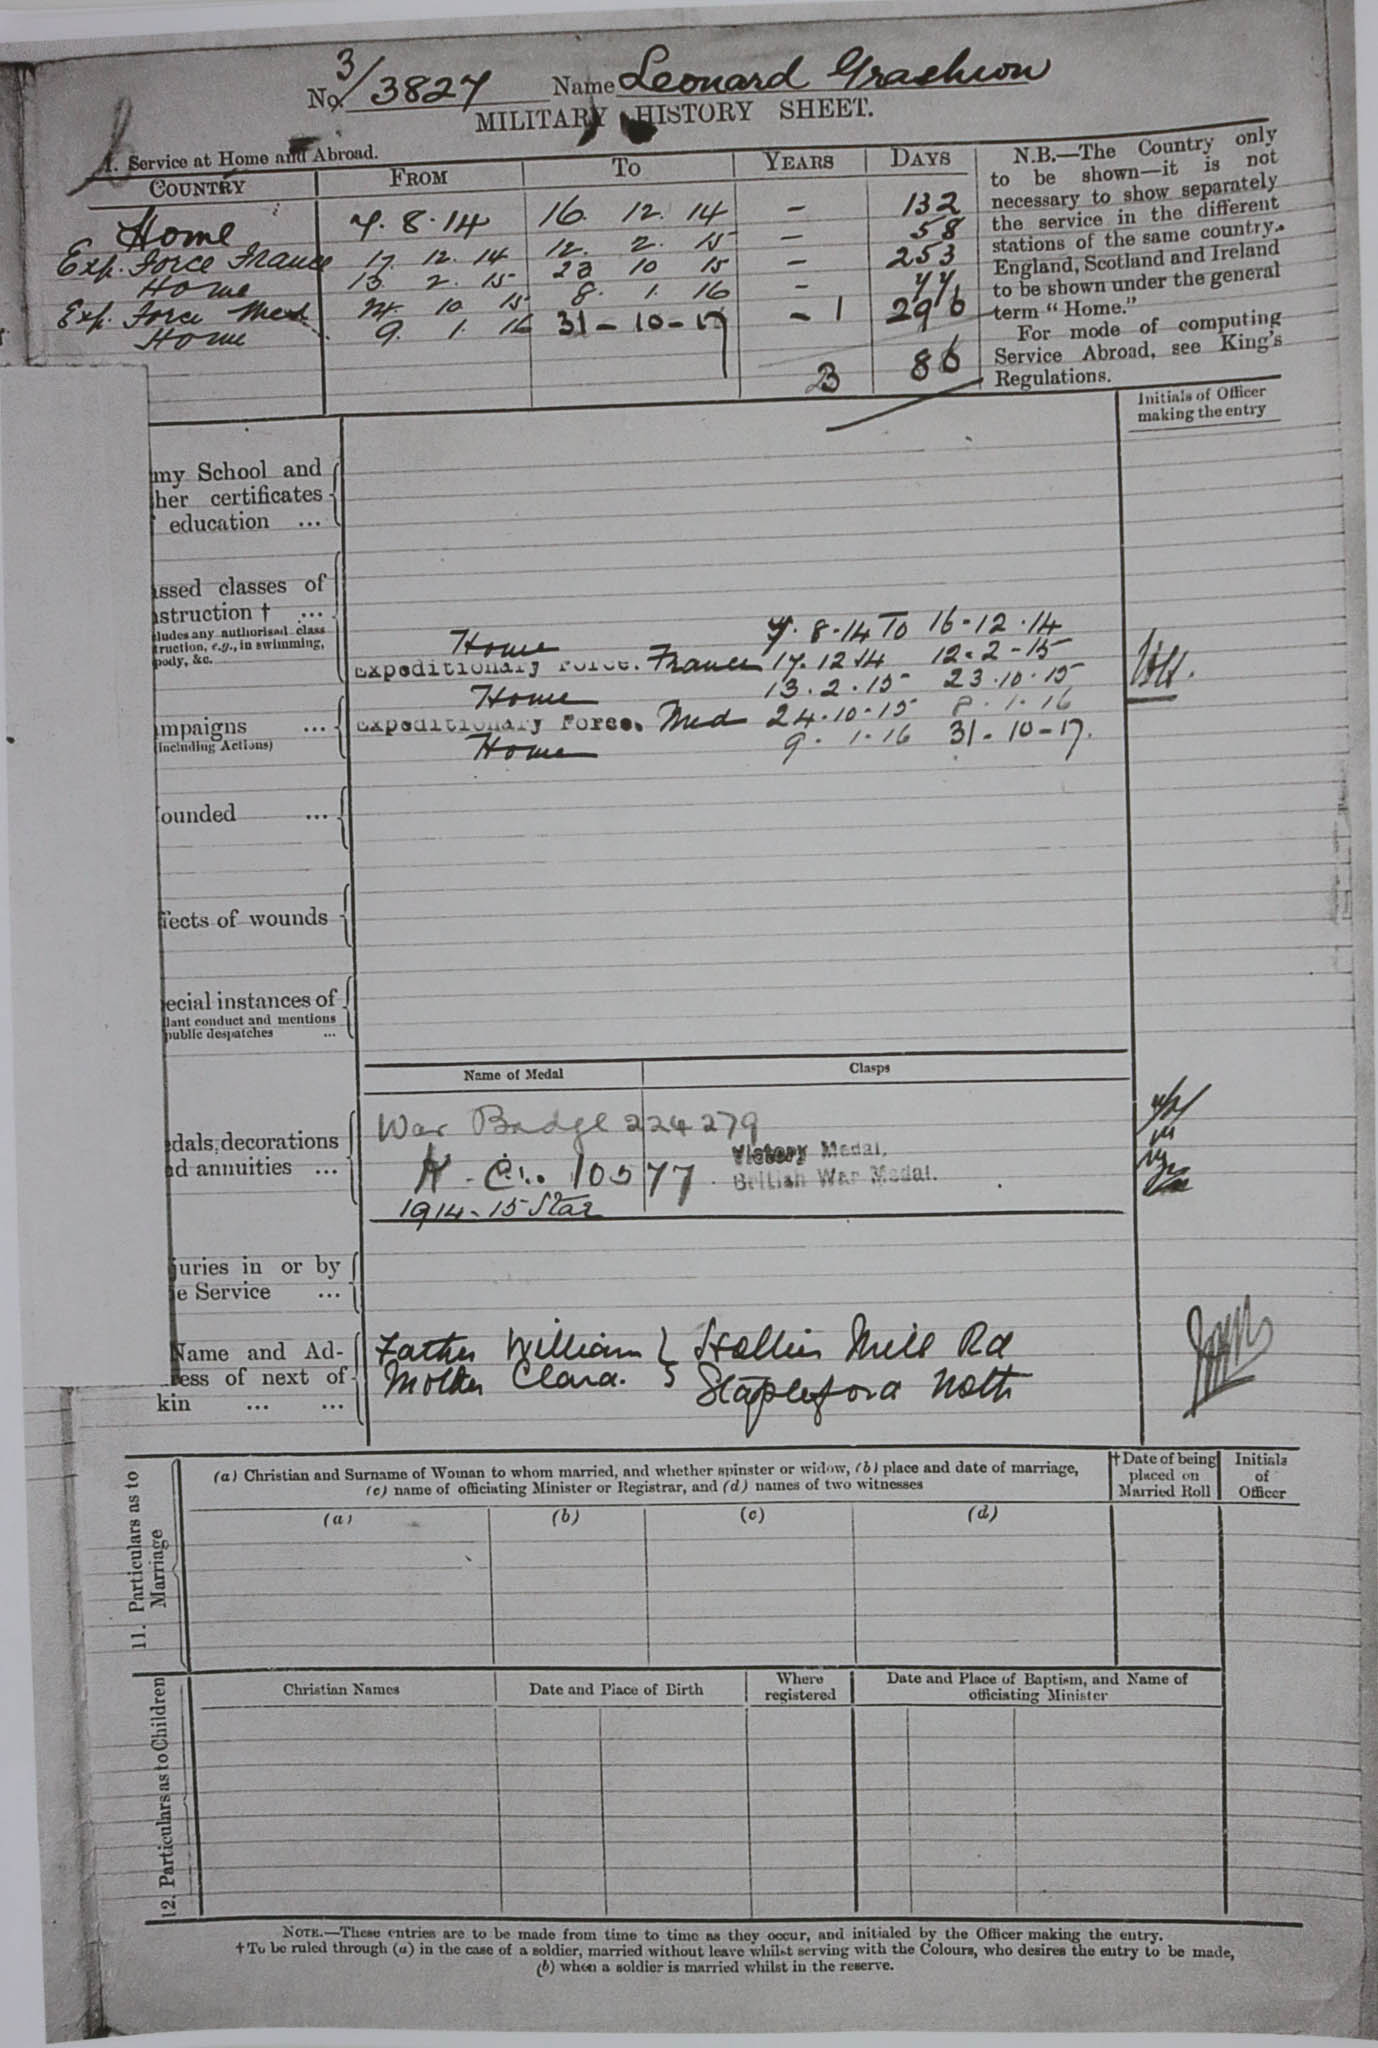 No. 3/3827 Name Leonard Grashion
MILITARY HISTORY SHEET.
1. Service at Home and Abroad.
COUNTRY FROM TO YEARS DAYS
Home 7. 8. 14 16. 12. 14 - 132
Exp. Force France 17 12. 14 12. 2. 15 - 58
Home 13 2. 15 23 10 15 - 253
Exp. Force Med 24. 10 15 8. 1. 16 - 77
Home 9. 1. 16 31-10-17 - 1 296
3 86
N.B.—The Country only
to be shown—it is not
necessary to show separately
the service in the different
stations of the same country.
England, Scotland and Ireland
to be shown under the general
term "Home."
For mode of computing
Service Abroad, see King's
Regulations.
Initials of Officer
making the entry
my School and
her certificates
education ...
assed classes of
nstruction † ...
cludes any authorised class
truction, e.g., in swimming,
pody, &c.
Home 7. 8-14 To 16-12.14
Expeditionary Force. France 17. 12 14 12. 2-15
Home 13. 2. 15 23.10.15
mpaigns ...
(including Actions)
Expeditionary Force. Med 24.10-15 8. 1. 16
Home 9. 1.16 31-10-17.
ounded ...
fects of wounds
ecial instances of
lant conduct and mentions
public despatches ...
Name of Medal Clasps
edals, decorations
nd annuities ...
War Badge 224279
10577
Victory Medal.
British War Medal.
1914-15 Star
juries in or by
e Service ...
Name and Ad-
ress of next of
kin ... ...
Father William } Hollies Mill Rd
Mother Clara. Stapleford Notts
11. Particulars as to
Marriage
(a) Christian and Surname of Woman to whom married, and whether spinster or widow, (b) place and date of marriage,
(c) name of officiating Minister or Registrar, and (d) names of two witnesses
†Date of being
placed on
Married Roll
Initials
of
Officer
(a) (b) (c) (d)
12. Particulars as to Children
Christian Names Date and Place of Birth Where
registered
Date and Place of Baptism, and Name of
officiating Minister
NOTE.—These entries are to be made from time to time as they occur, and initialed by the Officer making the entry.
†To be ruled through (a) in the case of a soldier, married without leave whilst serving with the Colours, who desires the entry to be made,
(b) when a soldier is married whilst in the reserve.